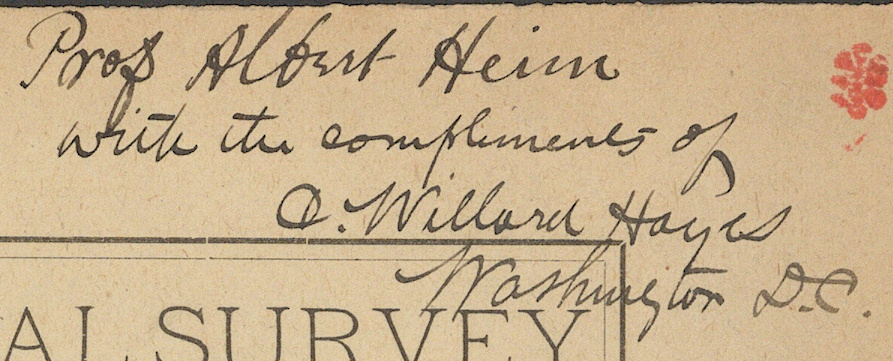 Prof Albert Heim
with the compliments of
C. Willard Hayes
Washington D.C.
AL SURVEY